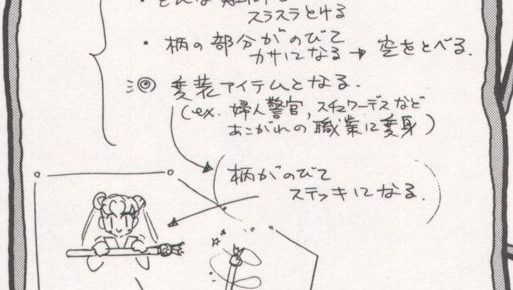 スラスラとける
・柄の部分がのびて
カサになる → 空をとべる.
変装アイテムとなる.
(ex. 婦人警官, スチュワーデスなど
あこがれの職業に変身)
(柄がのびて
ステッキになる.)